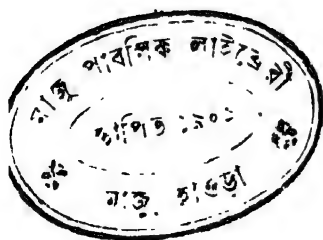 মাজু পাবলিক লাইব্রেরী
স্থাপিত ১৯০২
মাজু, হাওড়া